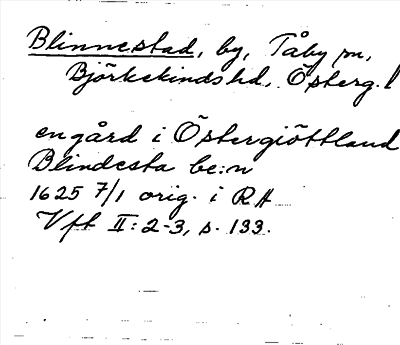 Blinnestad, by, Tåby sn,
Björkekinds hd, Österg. l
en gård i Östergiöttland
Blindesta be:n
1625 7/1 orig. i RA
Vft II: 2-3, s. 133.